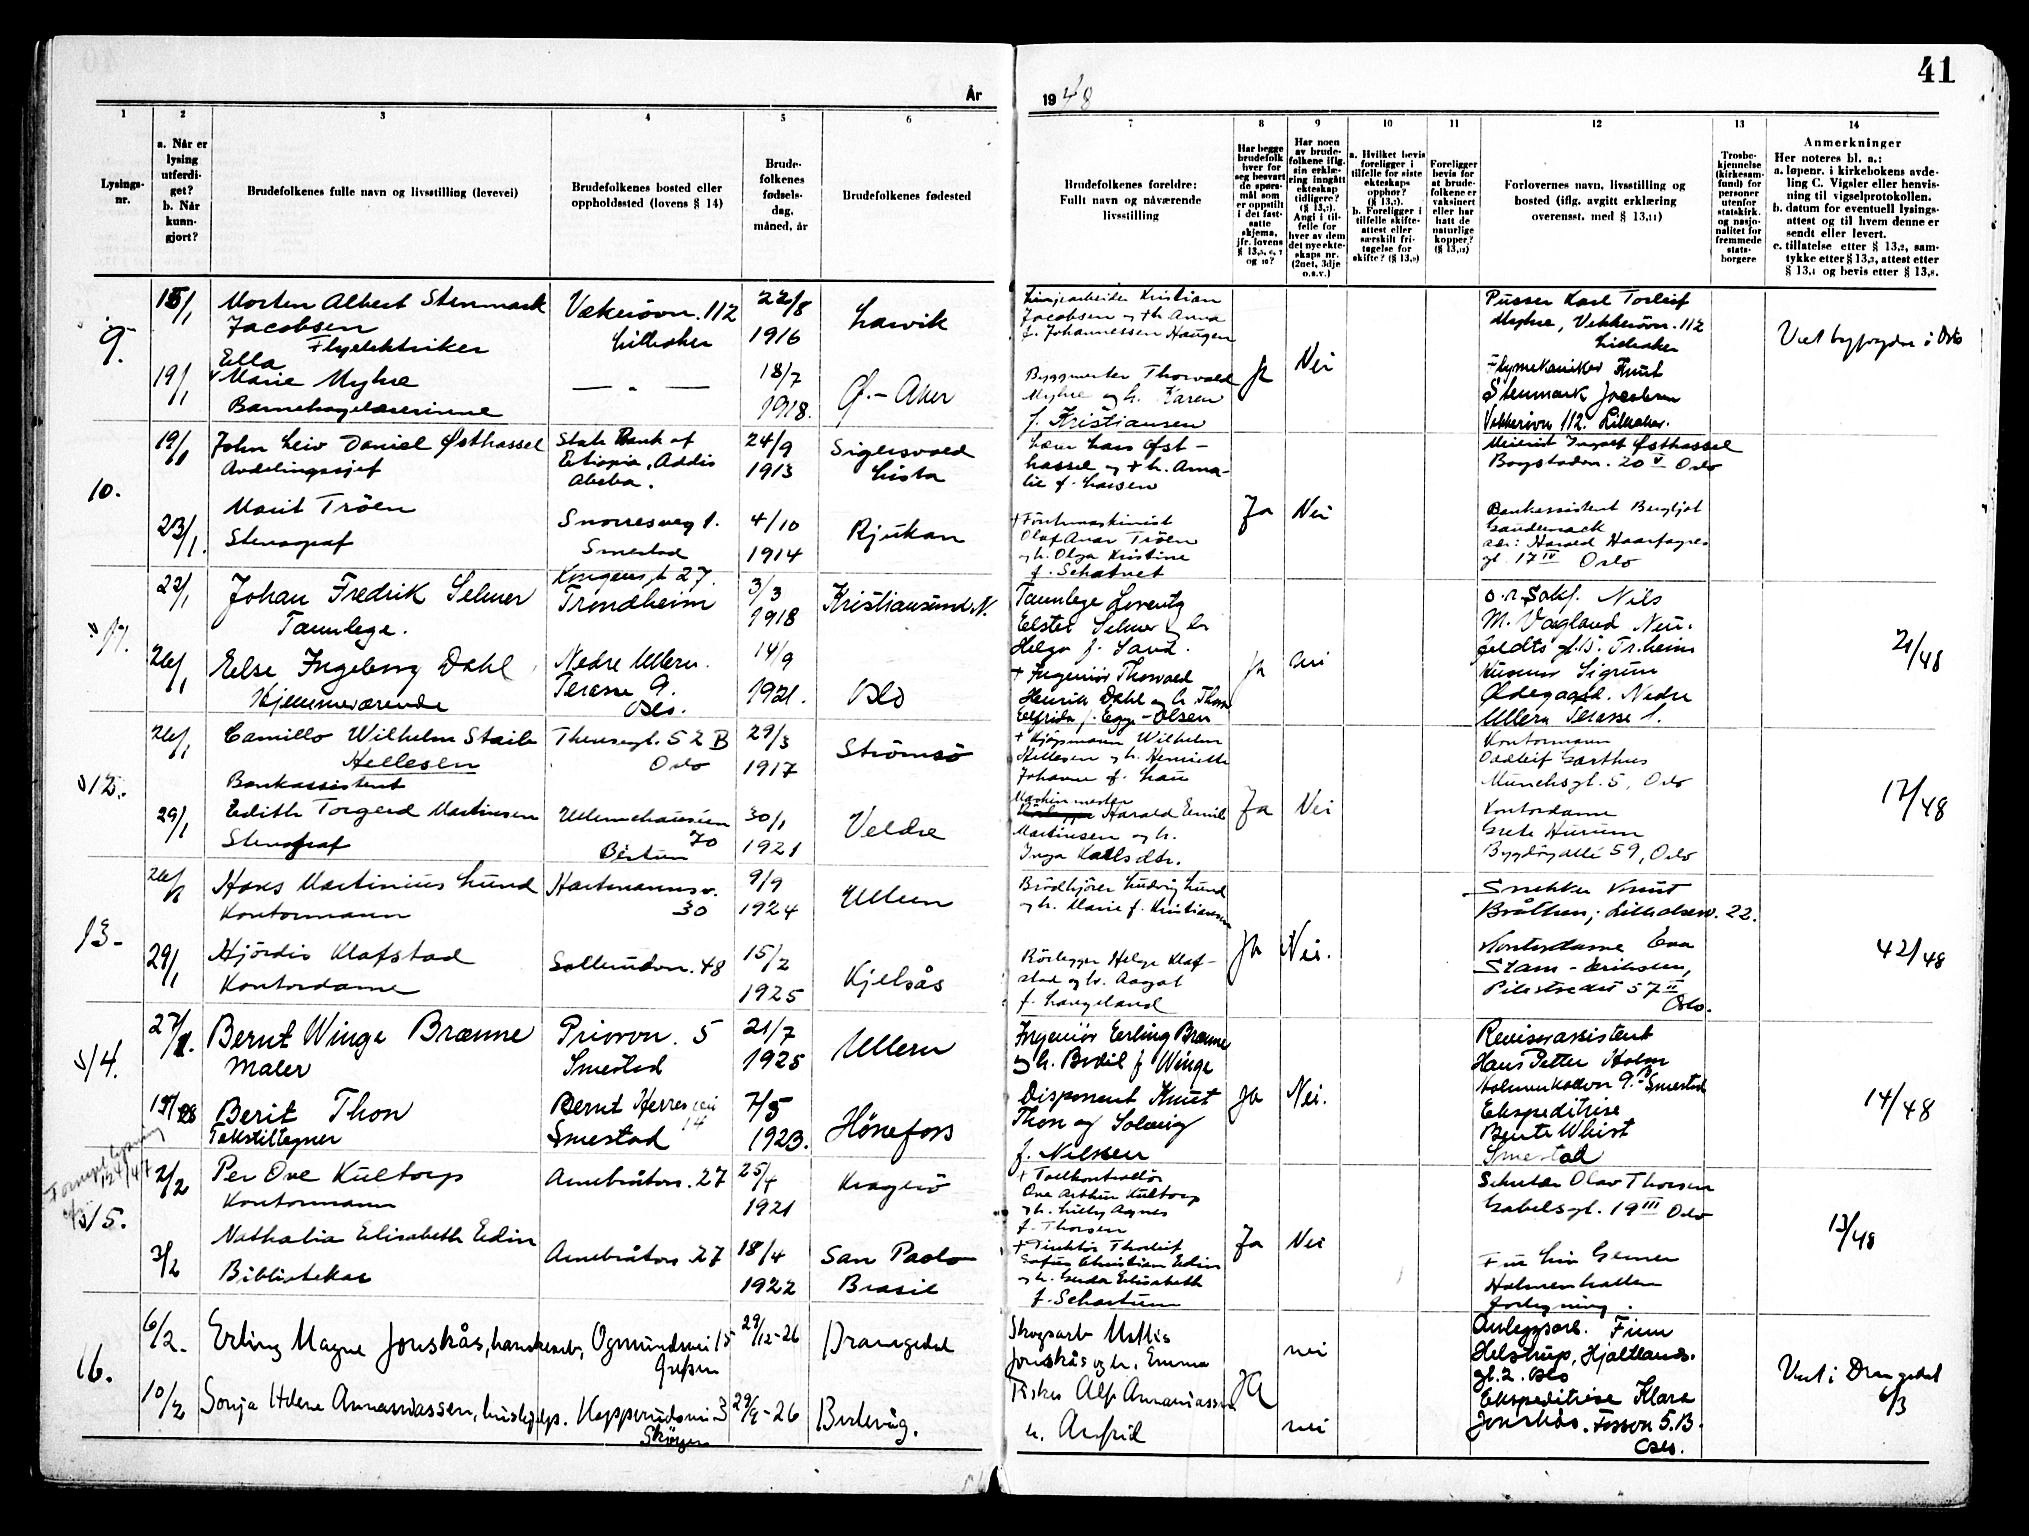 41
År
19 48
1
2
3
4
5
6
7
8
9
10
11
12
13
14
Lysings-
nr.
a. Når er
lysing
utferdi-
get?
b. Når
kunn-
gjort?
Brudefolkenes fulle navn og livsstilling (levevei)
Brudefolkenes bosted eller
oppholdssted (lovens § 14)
Brude-
folkenes
fødsels-
dag,
måned, år
Brudefolkenes fødested
Brudefolkenes foreldre:
Fullt navn og nåværende
livsstilling
Har begge
brudefolk
hver for
seg besvart
de spørs-
mål som
er oppstilt
i det fast-
satte
skjema,
jfr. lovens
Har noen
av brude-
folkene iflg.
sin erklæ-
ring inngått
ekteskap
tidligere?
(§ 13,7).
Angi i til-
felle for
hver av dem
det nye ekte-
skaps nr.
(2net, 3dje
o.s.v.)
a. Hvilket bevis
foreligger i
tilfelle for siste
ekteskaps
opphør?
b. Foreligger i
tilfelle skifte-
attest eller
særskilt fri-
tagelse for
skifte?
Foreligger
bevis for
at brude-
folkene er
vaksinert
eller har
hatt de
naturlige
kopper?
Forlovernes navn, livsstilling og
bosted (iflg. avgitt erklæring
overensst. med § 13,11)
Trosbe-
kjennelse
(kirkesam-
fund) for
personer
utenfor
statskirk.
og nasjo-
nalitet for
fremmede
stats-
borgere
Anmerkninger
Her noteres bl. a.:
a. løpenr. i kirkebokens avde-
ling C. Vigsler eller henvis-
ning til vigselprotokollen.
b. datum for eventuell lysings-
attest og til hvem denne er
sendt eller levert.
c. tillatelse etter § 13,2, sam-
tykke etter § 13,3, attest etter
§ 13,4 og bevis etter § 13,8.
9.
Morten Albert Stenmark
Jacobsen
Flyelektriker
Vækerövn. 112
Lilleaker
22/8
1916
Larvik
Linjearbeider Kristian
Jacobsen og + h. Anna
f. Johannessen Haugen
Pusser Karl Torleif
Myhre, Vekkerövn. 112
Lilleaker
19/1
Ella
Marie Myhre
Barnehagelærerinne
— " —
18/7
1918.
Ø.- Aker
Byggmester Thorvald
Myhre og h. Karen
f. Kristiansen
Ja
Nei
Flymekaniker Knut
Stenmark Jacobsen
Vekkerövn 112. Lilleaker.
10.
19/1
John Leiv Daniel Østhassel
Avdelingssjef
State Bank of
Etiopia, Addis
Abeba.
24/9
1913
Sigersvold
Lista
Lærer Lars Øst-
hassel og + h. Ama-
lie f. Larsen
Bogstadvn. 20 V Oslo
23/1.
Marit Tröen
Stenograf
Snorresveg 1.
Smestad
4/10
1914
Rjukan
Tröen
og h. Olga Kristine
Ja
Nei
Bankassistent Bergljot
adr: Harald Haarfagres
gt. 17 IV Oslo
11.
22/1
Johan Fredrik Selmer
Tannlege.
Kongens gt 27.
Trondheim
3/3
1918
Kristiansund N.
Tannlege Lorentz
Elster Selmer og h.
Helga f. Sand.
o.r.sakf. Nils
M. Vagland Neu-
feldts gt. Tr.heim
26/1
Else Ingeborg Dahl
Hjemmeværende
Nedre Ullern.
Terasse 9.
Oslo.
14/9
1921.
Oslo
+ Ingeniör Thorvald
Henrik Dahl og h. Thora
Elfrida f. Egge-Olsen
Ja
Nei
Sigrun
Ødegaard. Nedre
Ullern Terasse 1.
21/48
12.
26/1
Camillo Wilhelm Staib
Hellesen
Bankassistent
Theresegt. 52 B
Oslo
29/3
1917
Strömsö
+ Kjöpmann Wilhelm
Hellesen og h. Henriette
Johanne f. Lau
Kontormann
Oddleif Garthus
Munchsgt. 5, Oslo
29/1
Edith Torgerd Martinsen
Stenograf
Ullernchauseen
70
Bestum
30/1
1921
Veldre
Maskinmester
Harald Emil
Martinsen og h.
Inga Karlsdtr.
Ja
Nei
Kontordame
Grete Hurum
Bygdöy allé 59, Oslo
17/48
13-
Hans Martinius Lund
Kontormann
Hartmannsv.
30
9/9
1924
Ullern
Brödkjörer Ludvig Lund
og h. Marie f. Kristiansen
Snekker Knut
Bråthen, Lilleakerv. 22.
29/1
Hjördis Klafstad
Kontordame
Sollerudvn. 48
15/2
1925
Kjelsås
Rörlegger Helge Klaf-
stad og h. Aagot
f. Langeland
Ja
Nei.
Kontordame Eva
Stam-Eriksen,
Pilestredet 57 II
Oslo.
42/48
14.
27/1.
Bernt Winge Brænne
Maler
Priorvn. 5
Smestad
21/7
1925
Ullern
Ingeniör Erling Brænne
og h. Bodil f Winge
Revisorassistent
Hans Petter Holm
Holmenkollvn 9.B Smestad
Berit Thon
Tekstiltegner
Bernt Herres vei
14
Smestad
7/5
1923.
Hönefoss
Disponent Knut
Thon og Solveig
f. Nilsen
Ja
Nei.
Ekspeditrise
Bente Whist
Smestad
14/48
Fornyet lysing
124/47
15.
2/2
Per Ove Kultorp
Kontormann
Arnebråtvn. 27
25/4
1921
Kragerö
+ Tollkontrollör
Ove Arthur Kultorp
og h. Lilly Agnes
f. Thorsen
Olav Thorsen
Gabelsgt. 19 III Oslo
3/2
Nathalia Elisabeth Edin
Bibliotekar
Arnebråtvn. 27
18/4
1922
San Paolo
Brasil
+ Direktör Thorleif
Sofus Christian Edin
og h. Gerda Elisabeth
f. Schartum
Ja
Nei
Fru Liv Gerner
Holmenkollen
13/48
16.
6/2.
Erling Magne Jonskås,
Ogmundsvei 15
29/12-26
Drangedal
Skogsarb
Jonskås og h. Emma
nei
Anleggsarb. Finn
Helstrup, Hjaltlands-
gt. 2. Oslo
10/2
Sonja Helene Annaniassen, hushjelp.
Kopperudsvei 3
Sköyen
29/9-26
Berlevåg.
Fisker Alf Annaniassen
h. Anfrid
JA
nei
Ekspeditrise Klara
Jonskås. Fossvn 5.B.
Oslo.
Viet i Drangedal
6/3